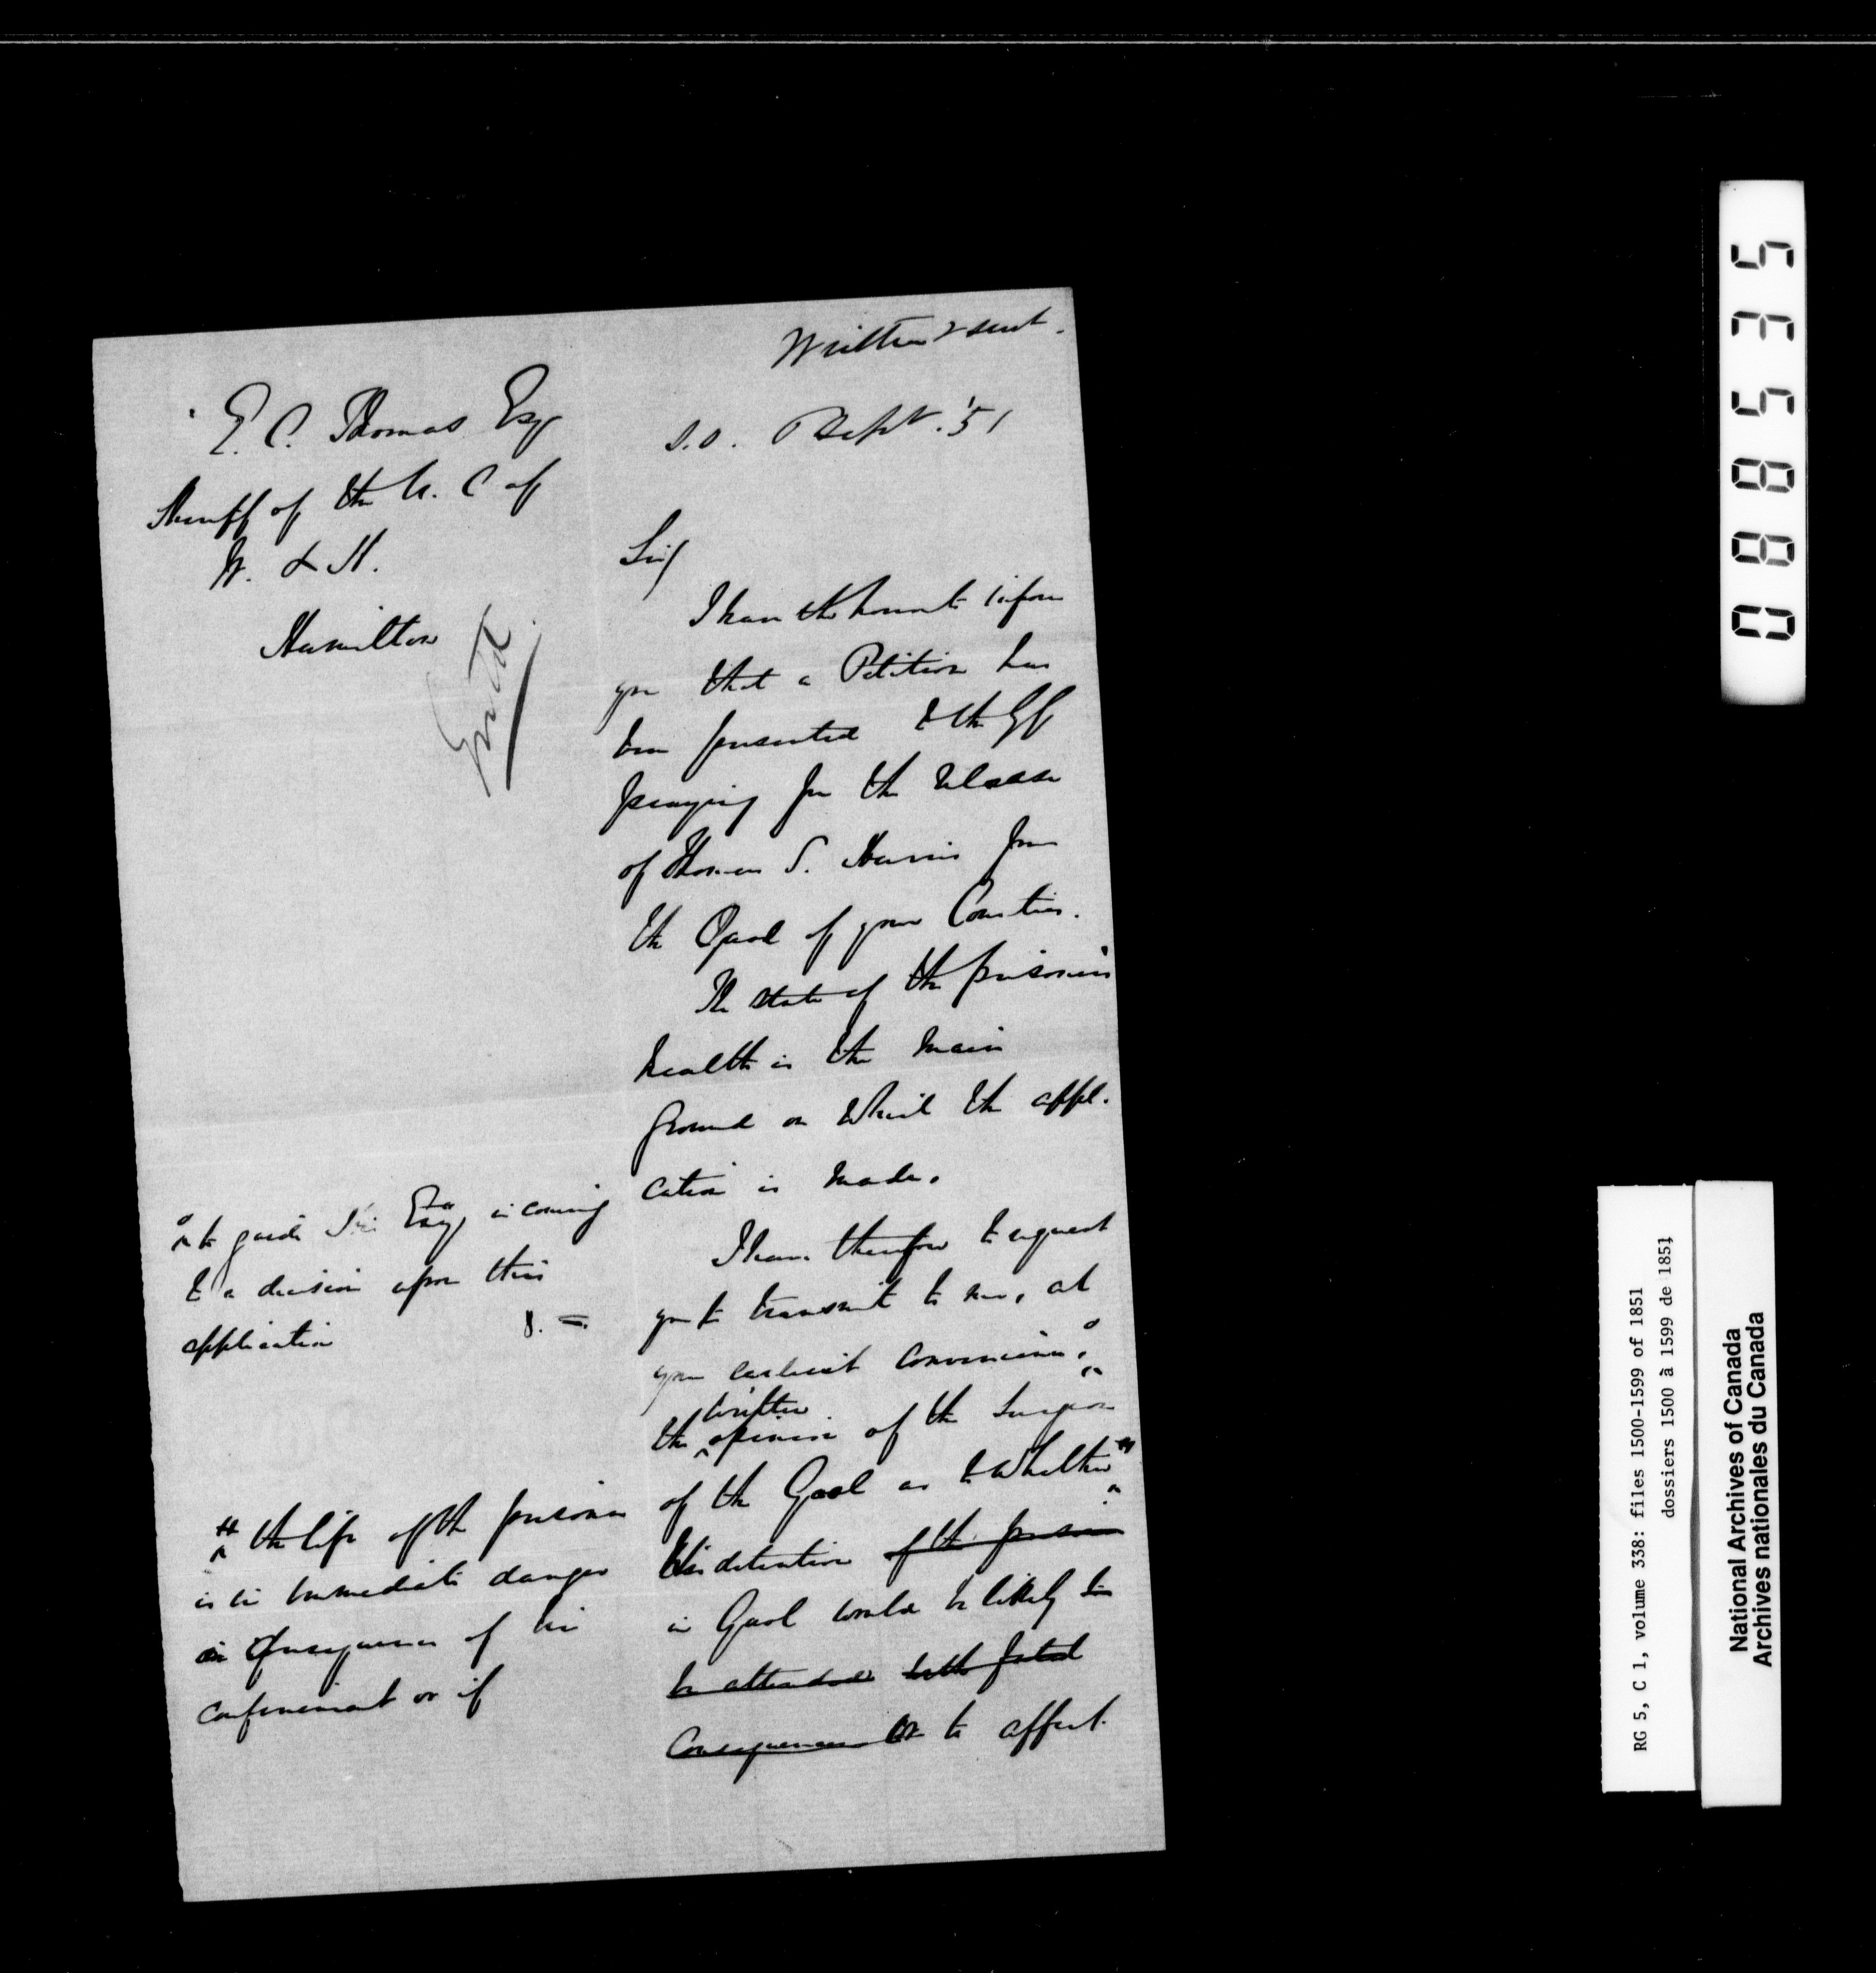 Written & sent.
E. C. Thomas Esq
Sheriff of the U. C of
W. & H.
Hamilton
Entd
S.O. Sept. '51
Sir/
I have the honor to inform
you that a Petition has
been presented to the GG
praying for the release
of Thomas S. Harris from
the Gaol of your Counties.
The state of the prisoner's
health is the main
ground on which the appl.
cation is made.
I have therefore to request
you to transmit to me, at
your earliest convenience,
written
the ^ opinion of the Surgeon
of the Gaol as to whether #
his detention of the prison
in Gaol would be likely to
be attended with fatal
Consequences or to affect
^ to guide His Excy in coming
to a decision upon this
application
# the life of the prisoner
is in immediate danger
in consequence of his
confinement or if
088535
RG 5, C 1, volume 338: files 1500-1599 of 1851
dossiers 1500 à 1599 de 1851
National Archives of Canada
Archives nationales du Canada